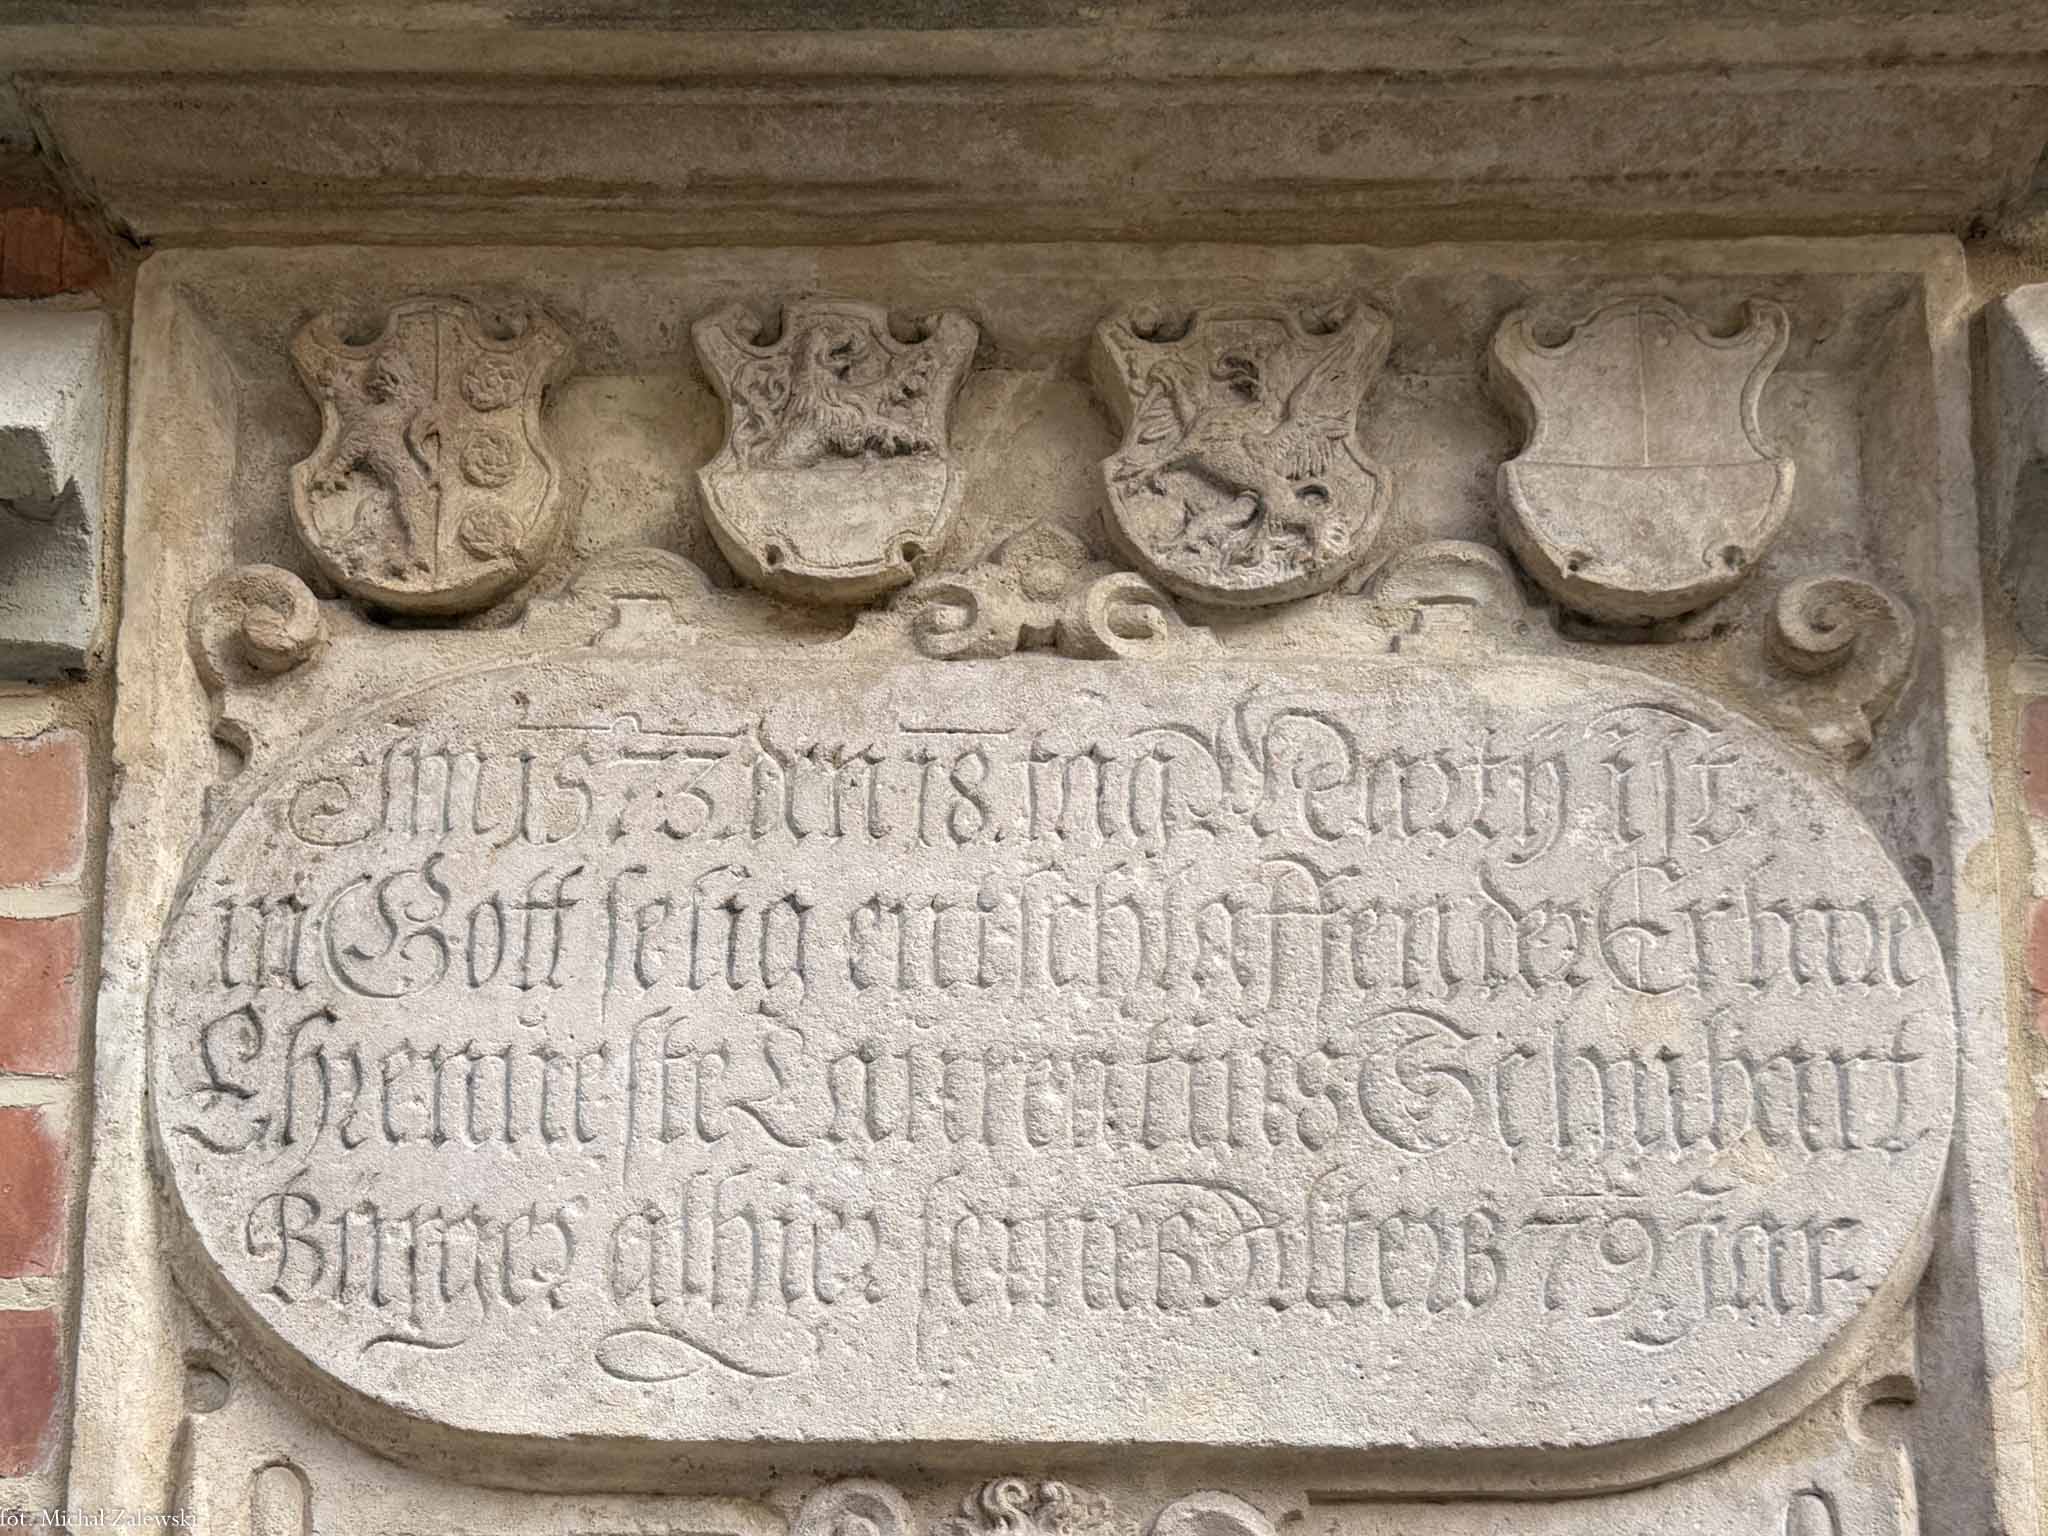 Im 1573. den 18. tag Marty ist
in Gott selig entschlaffen der Erbare
Ehrenueste Laurentius Schubart
Burger alhier seines Alters 79 jar
fot. Michał Zalewski